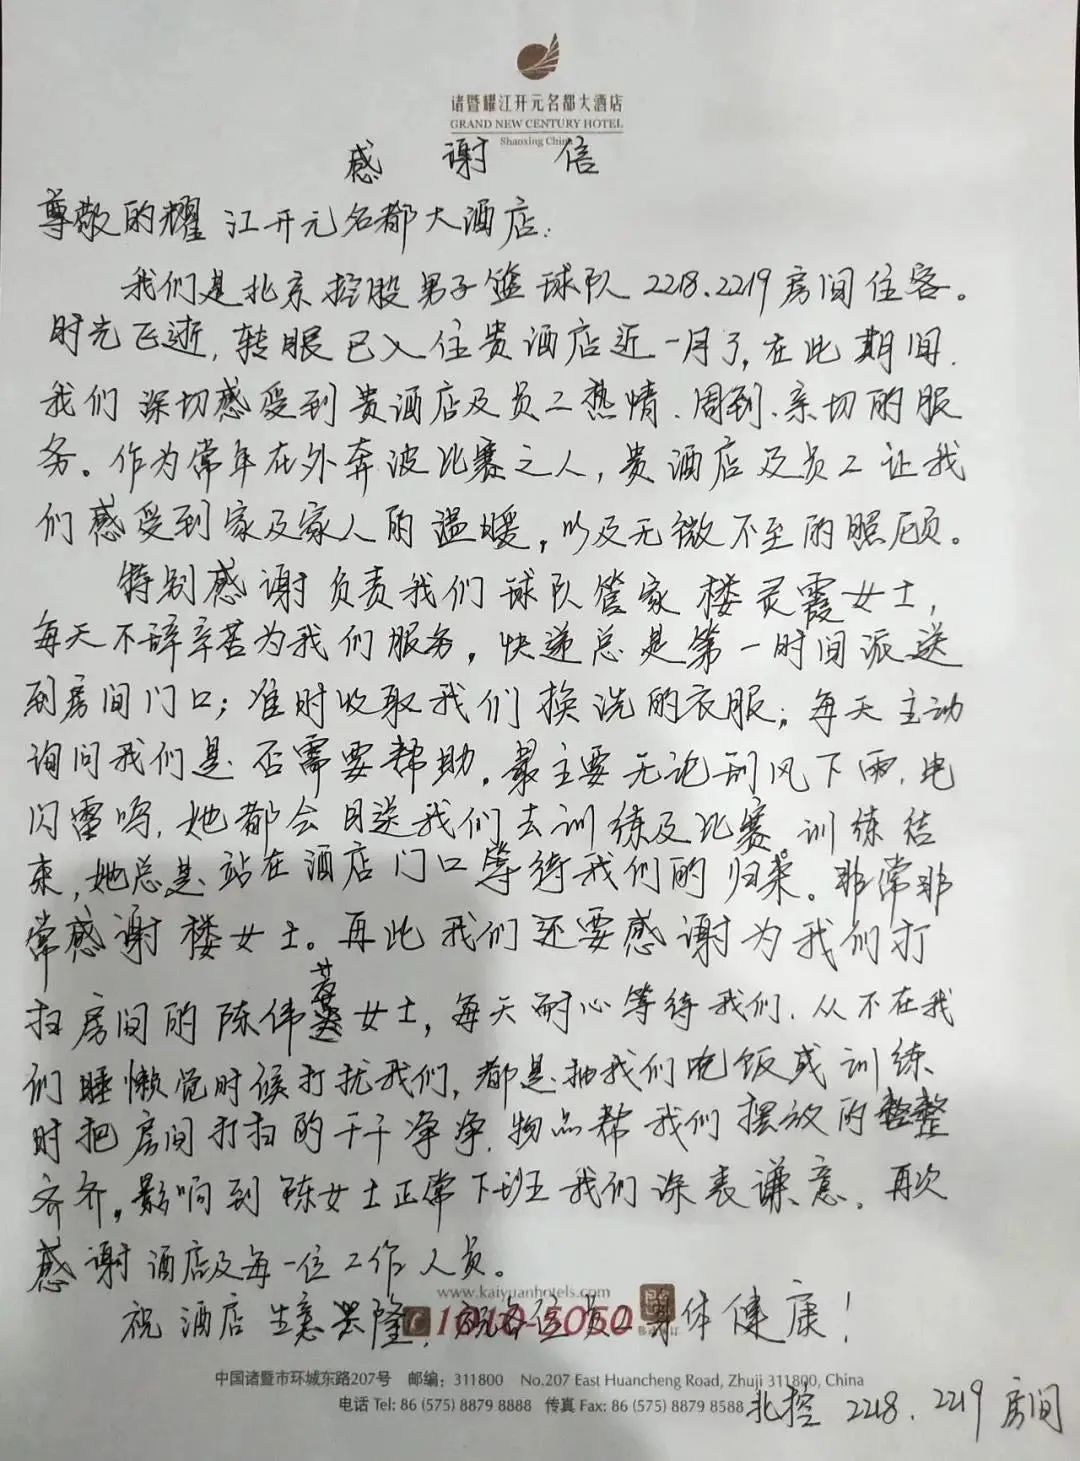 诸暨耀江开元名都大酒店
GRAND NEW CENTURY HOTEL
Shaoxing China
感谢信
尊敬的耀江开元名都大酒店:
我们是北京控股男子篮球队2218、2219房间住客。
时光飞逝,转眼已入住贵酒店近一月了,在此期间,
我们深切感受到贵酒店及员工热情、周到、亲切的服
务。作为常年在外奔波比赛之人,贵酒店及员工让我
们感受到家及家人的温暖,以及无微不至的照顾。
特别感谢负责我们球队管家楼灵霞女士,
每天不辞辛苦为我们服务,快递总是第一时间派送
到房间门口;准时收取我们换洗的衣服;每天主动
询问我们是否需要帮助。最主要无论刮风下雨,电
闪雷鸣,她都会目送我们去训练及比赛。训练结
束,她总是站在酒店门口等待我们的归来。非常非
常感谢楼女士。再此我们还要感谢为我们打
扫房间的陈伟女士,每天耐心等待我们,从不在我
们睡懒觉时候打扰我们,都是抽我们吃饭或训练
时把房间打扫的干干净净,物品帮我们摆放的整整
齐齐,影响到陈女士正常下班我们深表谦意。再次
感谢酒店及每一位工作人员。
www.kaiyuanhotels.com
祝酒店生意兴隆,祝各位员工身体健康!
1010-5050
中国诸暨市环城东路207号 邮编:311800 No.207 East Huancheng Road, Zhuji 311800, China
电话 Tel: 86 (575) 8879 8888 传真 Fax: 86 (575) 8879 8588
北控 2218、2219房间